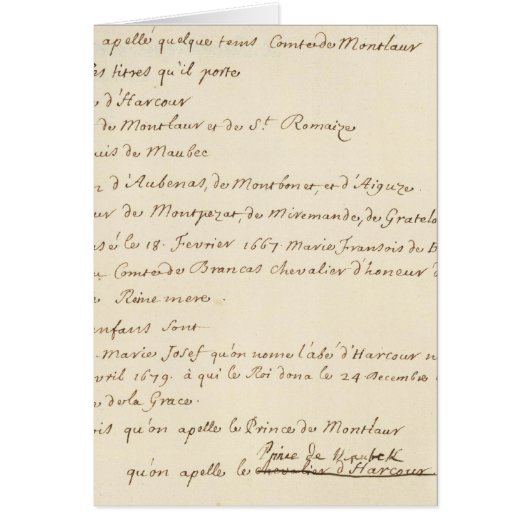 apellé quelque tems Comte de Montlaur
titres qu'il porte
d'Harcour
de Montlaur et de St. Romaize
uis de Maubec
d'Aubenas, de Montbonet, et d'Aiguze.
ur de Montpezat, de Miremande, de Gratelo
sé le 18. Fevrier 1667. Marie Fransois de B
Comte de Brancas chevalier d'honeur
Reine mere.
enfans sont
Marie Josef qu'on nome l'abé d'Harcour n
vril 1679. à qui le Roi dona le 24 Decembre
de la Grace.
ois qu'on apelle le Prince de Montlaur
Prince de Maubek
qu'on apelle le chevalier d'Harcour.